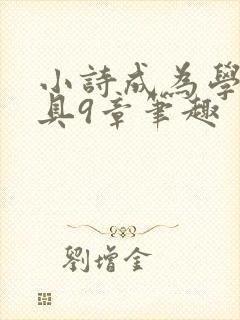 小詩成為學
具9章筆趣
劉增金